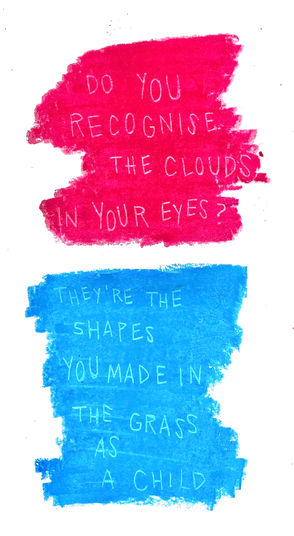 DO YOU
RECOGNISE
THE CLOUDS
IN YOUR EYES?
THEY'RE THE
SHAPES
YOU MADE IN
THE GRASS
AS
A CHILD